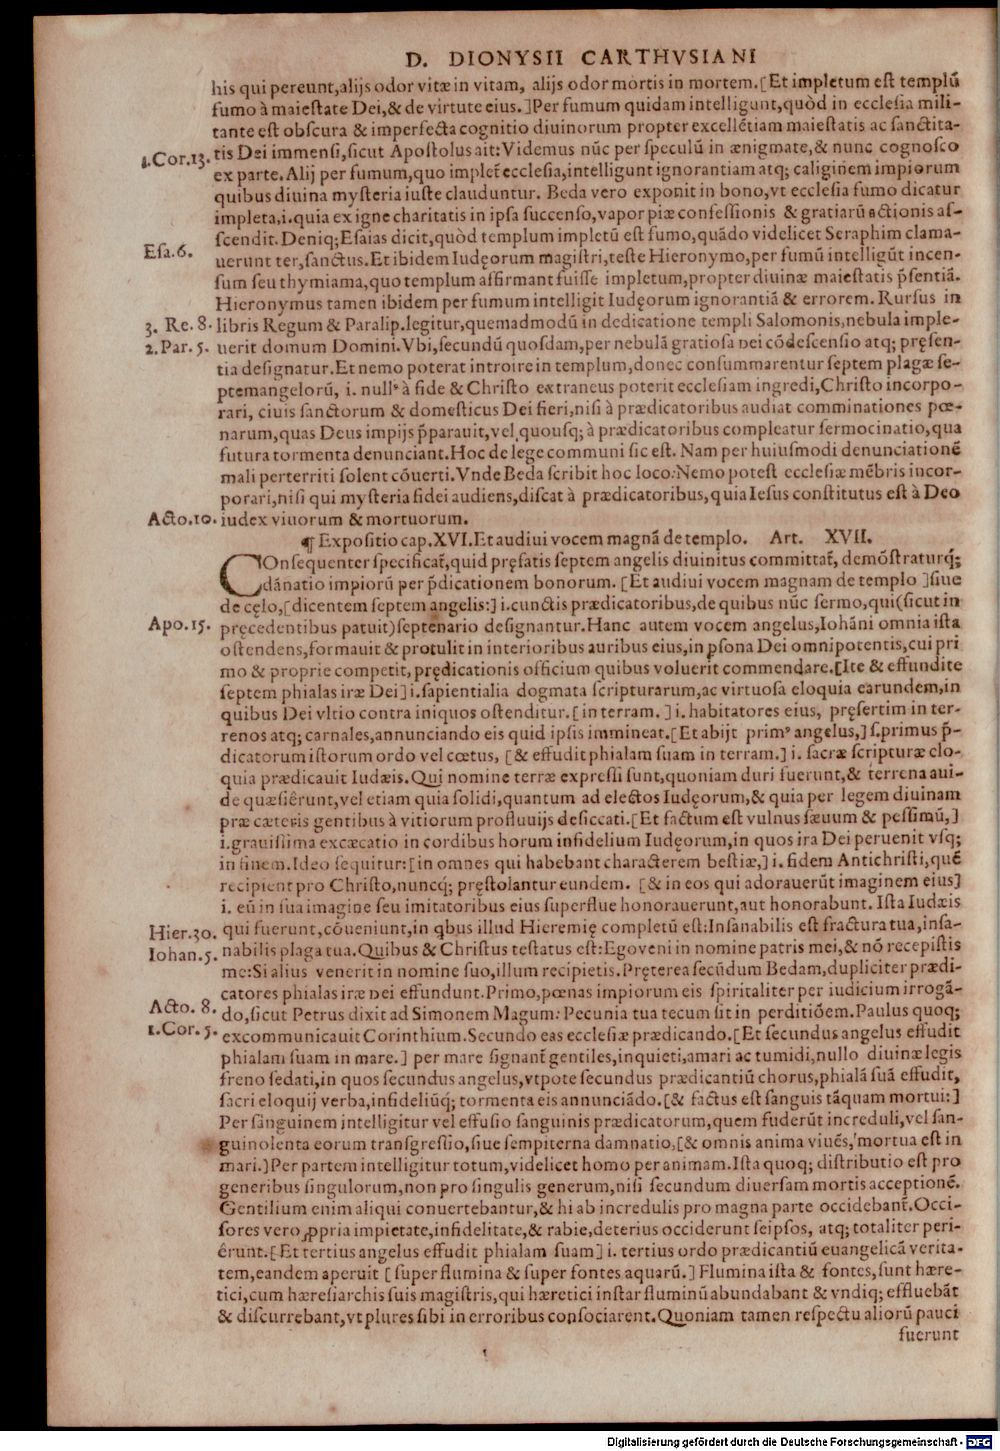 D. DIONYSII CARTHVSIANI
his qui pereunt,alijs odor vitæ in vitam, alijs odor mortis in mortem.[Et impletum est templū
fumo à maiestate Dei,& de virtute eius.]Per fumum quidam intelligunt,quòd in ecclesia mili-
tante est obscura & imperfecta cognitio diuinorum propter excellētiam maiestatis ac sanctita-
1.Cor.13. tis Dei immensi,sicut Apostolus ait:Videmus nūc per speculū in ænigmate,& nunc cognosco
ex parte. Alij per fumum,quo implet̄ ecclesia,intelligunt ignorantiam atq; caliginem impiorum
quibus diuina mysteria iuste clauduntur. Beda vero exponit in bono,vt ecclesia fumo dicatur
impleta,i.quia ex igne charitatis in ipsa succenso,vapor piæ confessionis & gratiarū actionis as-
scendit. Deniq; Esaias dicit,quòd templum impletū est fumo,quādo videlicet Seraphim clama-
Esa.6. uerunt ter,sanctus.Et ibidem Iudęorum magistri,teste Hieronymo,per fumū intelligūt incen-
sum seu thymiama,quo templum affirmant fuisse impletum,propter diuinæ maiestatis p̄sentiā.
Hieronymus tamen ibidem per fumum intelligit Iudęorum ignorantiā & errorem. Rursus in
3. Re. 8. libris Regum & Paralip.legitur,quemadmodū in dedicatione templi Salomonis,nebula imple-
2.Par. 5. uerit domum Domini.Vbi,secundū quosdam,per nebulā gratiosa Dei cōdescensio atq; pręsen-
tia designatur.Et nemo poterat introire in templum,donec consummarentur septem plagæ se-
ptemangelorū, i. null⁹ à fide & Christo extraneus poterit ecclesiam ingredi,Christo incorpo-
rari, ciuis sanctorum & domesticus Dei fieri,nisi à prædicatoribus audiat comminationes pœ-
narum,quas Deus impijs p̄parauit,vel quousq; à prædicatoribus compleatur sermocinatio,qua
futura tormenta denunciant.Hoc de lege communi sic est. Nam per huiusmodi denunciationē
mali perterriti solent cōuerti.Vnde Beda scribit hoc loco:Nemo potest ecclesiæ mēbris incor-
porari,nisi qui mysteria fidei audiens,discat à prædicatoribus,quia Iesus constitutus est à Deo
Acto.10. iudex viuorum & mortuorum.
¶ Expositio cap.XVI.Et audiui vocem magnā de templo. Art. XVII.
COnsequenter specificat̄,quid pręfatis septem angelis diuinitus committat̄, demōstraturq́;
dānatio impiorū per p̄dicationem bonorum. [Et audiui vocem magnam de templo ]siue
de cęlo,[dicentem septem angelis:] i.cunctis prædicatoribus,de quibus nūc sermo,qui(sicut in
Apo.15. pręcedentibus patuit)septenario designantur.Hanc autem vocem angelus,Iohāni omnia ista
ostendens,formauit & protulit in interioribus auribus eius,in ꝑsona Dei omnipotentis,cui pri
mo & proprie competit, prędicationis officium quibus voluerit commendare.[Ite & effundite
septem phialas iræ Dei] i.sapientialia dogmata scripturarum,ac virtuosa eloquia earundem,in
quibus Dei vltio contra iniquos ostenditur.[ in terram. ] i. habitatores eius, pręsertim in ter-
renos atq; carnales,annunciando eis quid ipsis immineat.[Et abijt prim⁹ angelus,] s.primus p̄-
dicatorum istorum ordo vel cœtus, [& effudit phialam suam in terram.] i. sacræ scripturæ elo-
quia prædicauit Iudæis. Qui nomine terræ expressi sunt,quoniam duri fuerunt,& terrena aui-
de quæsiêrunt,vel etiam quia solidi,quantum ad electos Iudęorum,& quia per legem diuinam
præ cæteris gentibus à vitiorum profluuijs desiccati.[Et factum est vulnus sæuum & pessimū,]
i.grauissima excæcatio in cordibus horum infidelium Iudęorum,in quos ira Dei peruenit vsq;
in finem.Ideo sequitur:[in omnes qui habebant characterem bestiæ,] i. fidem Antichristi,quē
recipient pro Christo,nuncq́; pręstolantur eundem. [& in eos qui adorauerūt imaginem eius]
i. eū in sua imagine seu imitatoribus eius superflue honorauerunt,aut honorabunt. Ista Iudæis
Hier.30. qui fuerunt,cōueniunt, in q̇bus illud Hieremię completū est:Insanabilis est fractura tua,insa-
Iohan.5. nabilis plaga tua.Quibus & Christus testatus est:Ego veni in nomine patris mei,& nō recepistis
me:Si alius venerit in nomine suo,illum recipietis.Pręterea secūdum Bedam,dupliciter prædi-
catores phialas iræ Dei effundunt.Primo,pœnas impiorum eis spiritaliter per iudicium irrogā-
Acto. 8. do,sicut Petrus dixit ad Simonem Magum: Pecunia tua tecum sit in perditiōem.Paulus quoq;
1.Cor. 5. excommunicauit Corinthium.Secundo eas ecclesiæ prædicando.[Et secundus angelus effudit
phialam suam in mare.] per mare signant̄ gentiles,inquieti,amari ac tumidi,nullo diuinæ legis
freno sedati,in quos secundus angelus,vtpote secundus prædicantiū chorus,phialā suā effudit,
sacri eloquij verba,infideliūq́; tormenta eis annunciādo.[& factus est sanguis tāquam mortui:]
Per sanguinem intelligitur vel effusio sanguinis prædicatorum,quem fuderūt increduli,vel san-
guinolenta eorum transgressio,siue sempiterna damnatio,[& omnis anima viuēs, mortua est in
mari.]Per partem intelligitur totum,videlicet homo per animam.Ista quoq; distributio est pro
generibus singulorum,non pro singulis generum,nisi secundum diuersam mortis acceptionē.
Gentilium enim aliqui conuertebantur,& hi ab incredulis pro magna parte occidebant̄.Occi-
sores vero ꝓpria impietate,infidelitate,& rabie,deterius occiderunt seipsos, atq; totaliter peri-
êrunt.[Et tertius angelus effudit phialam suam] i. tertius ordo prædicantiū euangelicā verita-
tem,eandem aperuit [ super flumina & super fontes aquarū.] Flumina ista & fontes,sunt hære-
tici,cum hæresiarchis suis magistris,qui hæretici instar fluminū abundabant & vndiq; effluebāt
& discurrebant,vt plures sibi in erroribus consociarent.Quoniam tamen respectu aliorū pauci
fuerunt
Digitalisierung gefördert durch die Deutsche Forschungsgemeinschaft - DFG